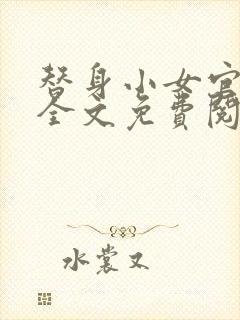 替身小女官
全文免费阅
水裳又